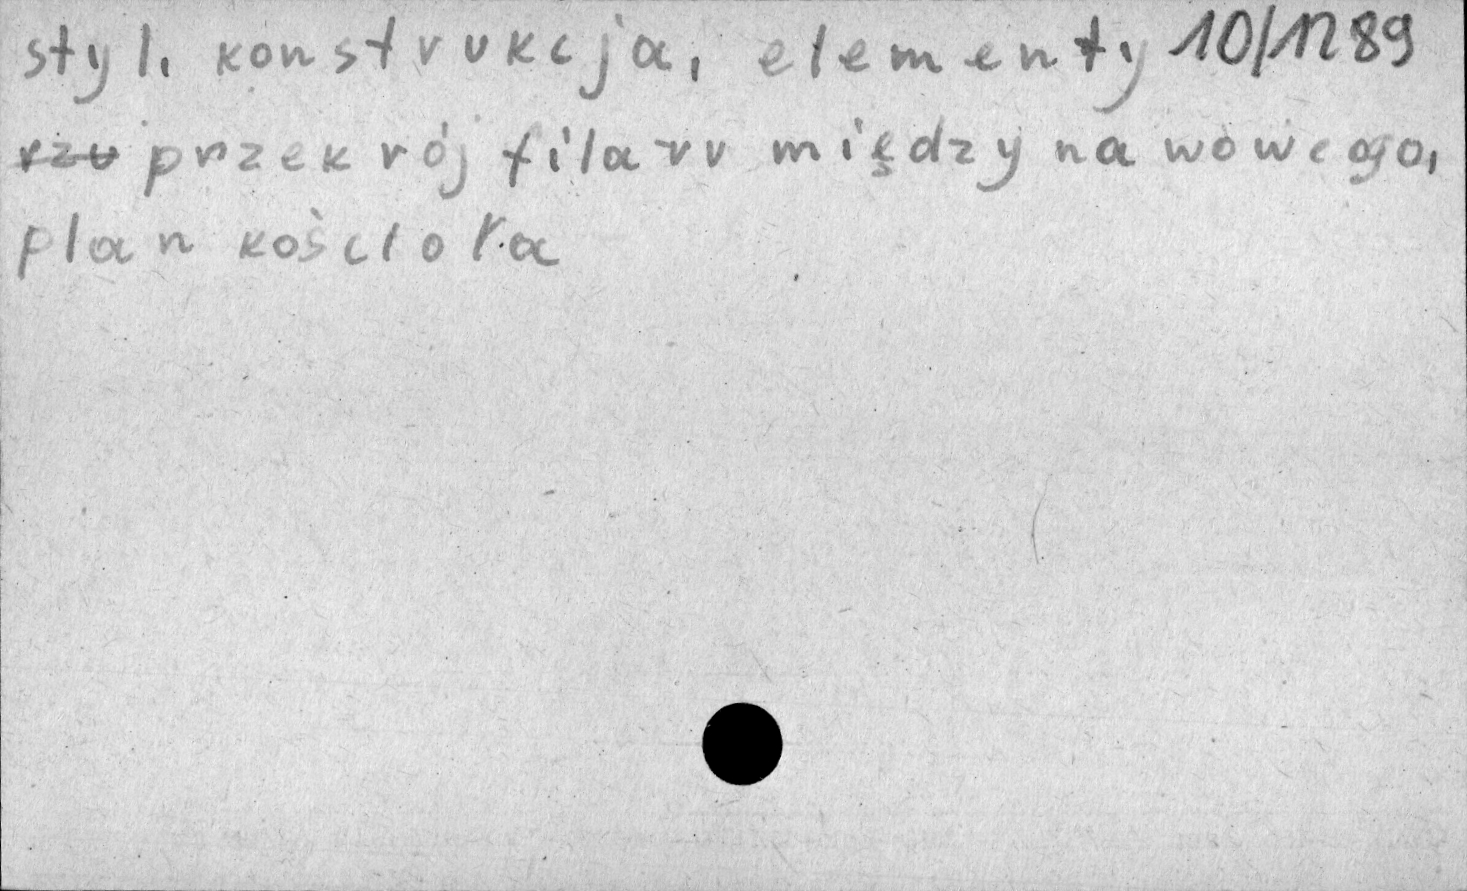 styl, konstrukcja, elementy 10/1289
rzu przekrój filaru międzynawowego,
plan kościoła